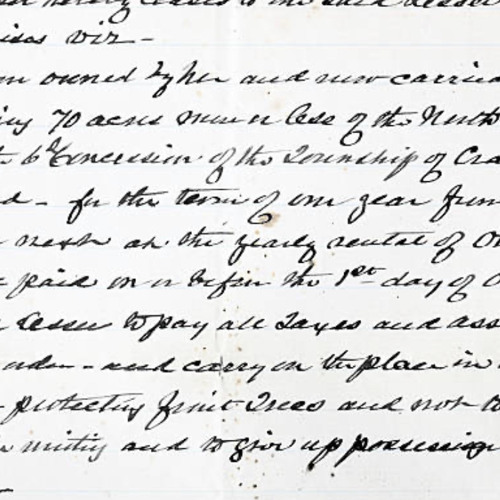 hereby leases to the said Lessee
ises viz -
owned by her and now carried
ing 70 acres more or less of the North
6th Concession of the Township of Cra
d - for the term of one year from
next at the yearly rental of On
paid on or before the 1st day of O
Lessee to pay all Taxes and ass
order - and carry on the place in
protecting fruit Trees and not
writing and to give up possession